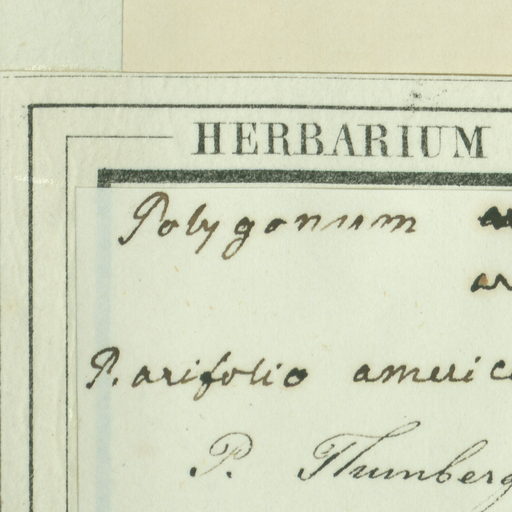 HERBARIUM
Polygonum
P. arifolio
P. Thunberg